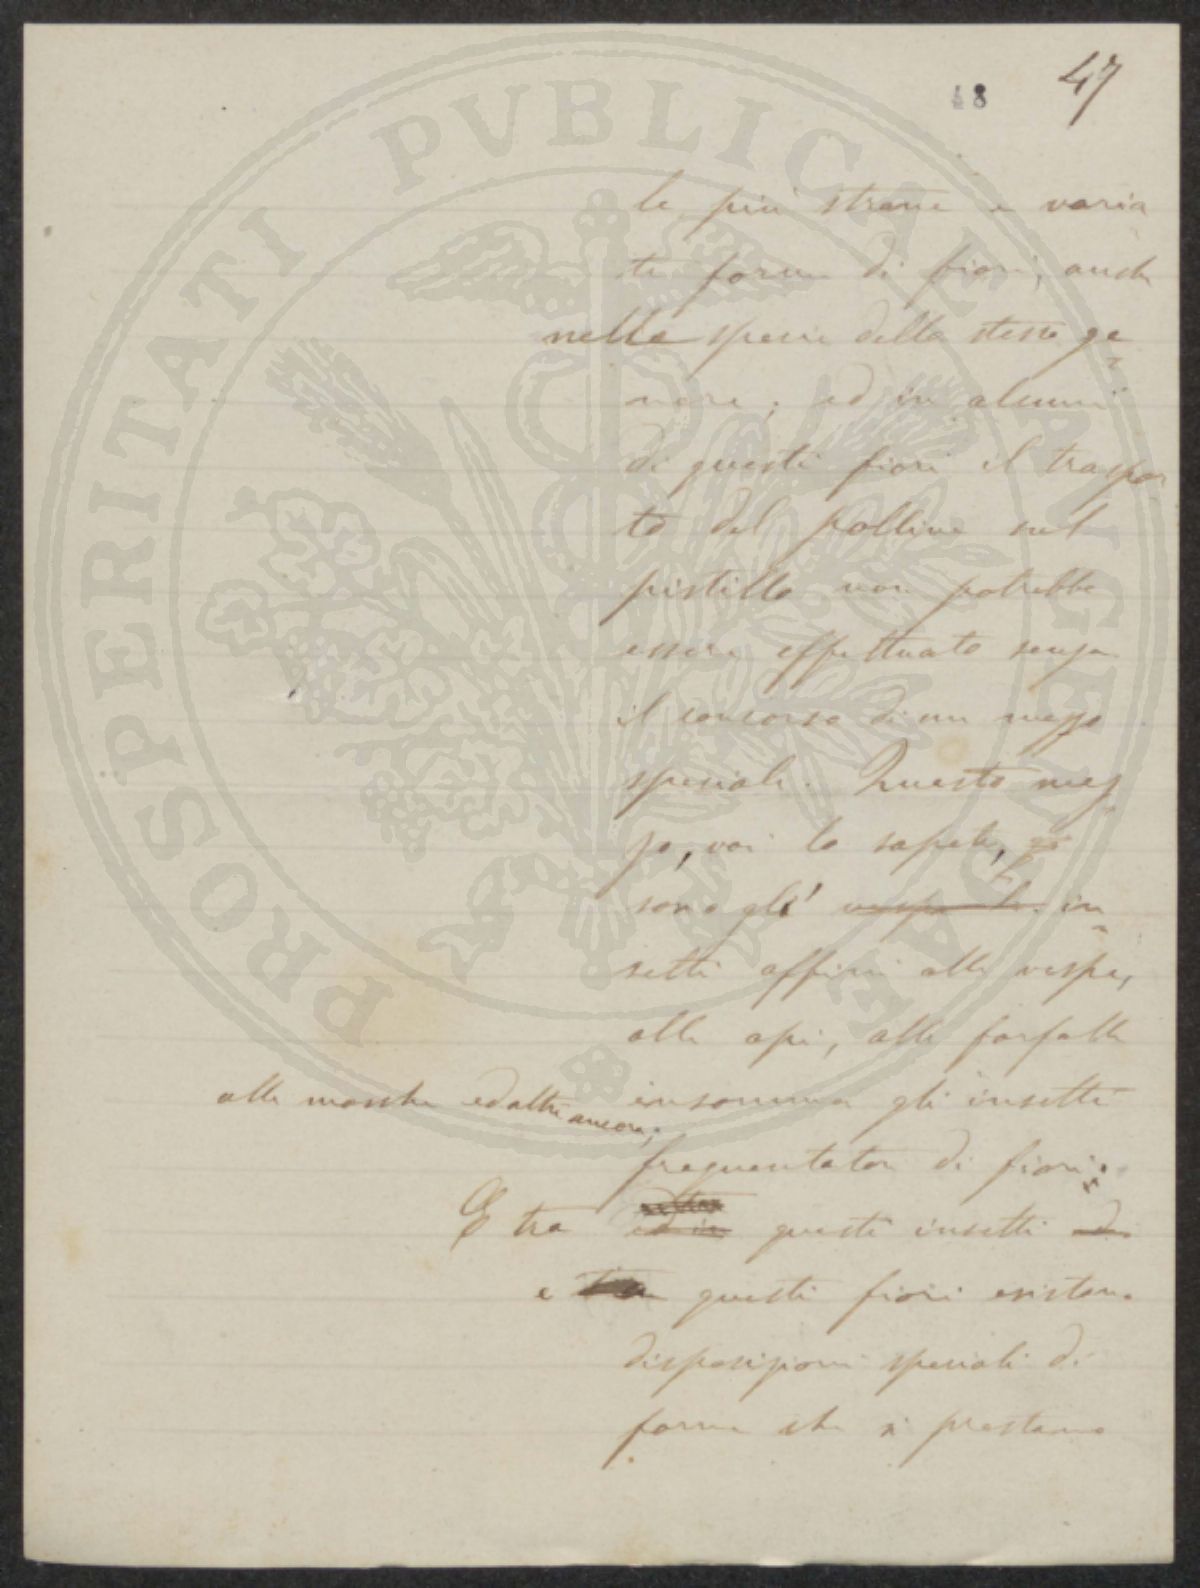 48 47
le più strane e varia
te forme di fiori, anche
nelle specie dello stesso ge
nere; ed in alcuni
di questi fiori il traspor
to del polline sul
pistillo non potrebbe
essere effettuato senza
il concorso di un mezzo
speciale. Questo mez
zo, voi lo sapete,
sono gli in
setti affini alle vespe,
alle api, alle farfalle
alle mosche ed altri ancora; insomma gli insetti
frequentatori di fiori.
E tra ed in questi insetti
e tra questi fiori esistono
disposizioni speciali di
forma che si prestano
PROSPERITATI PVBLICAE AVGENDAE